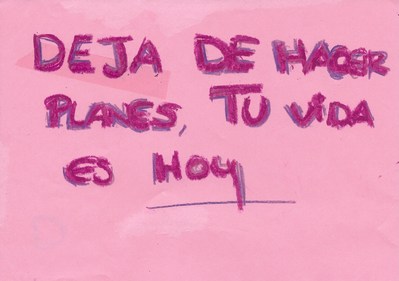 DEJA DE HACER
PLANES, TU ViDA
ES HOY